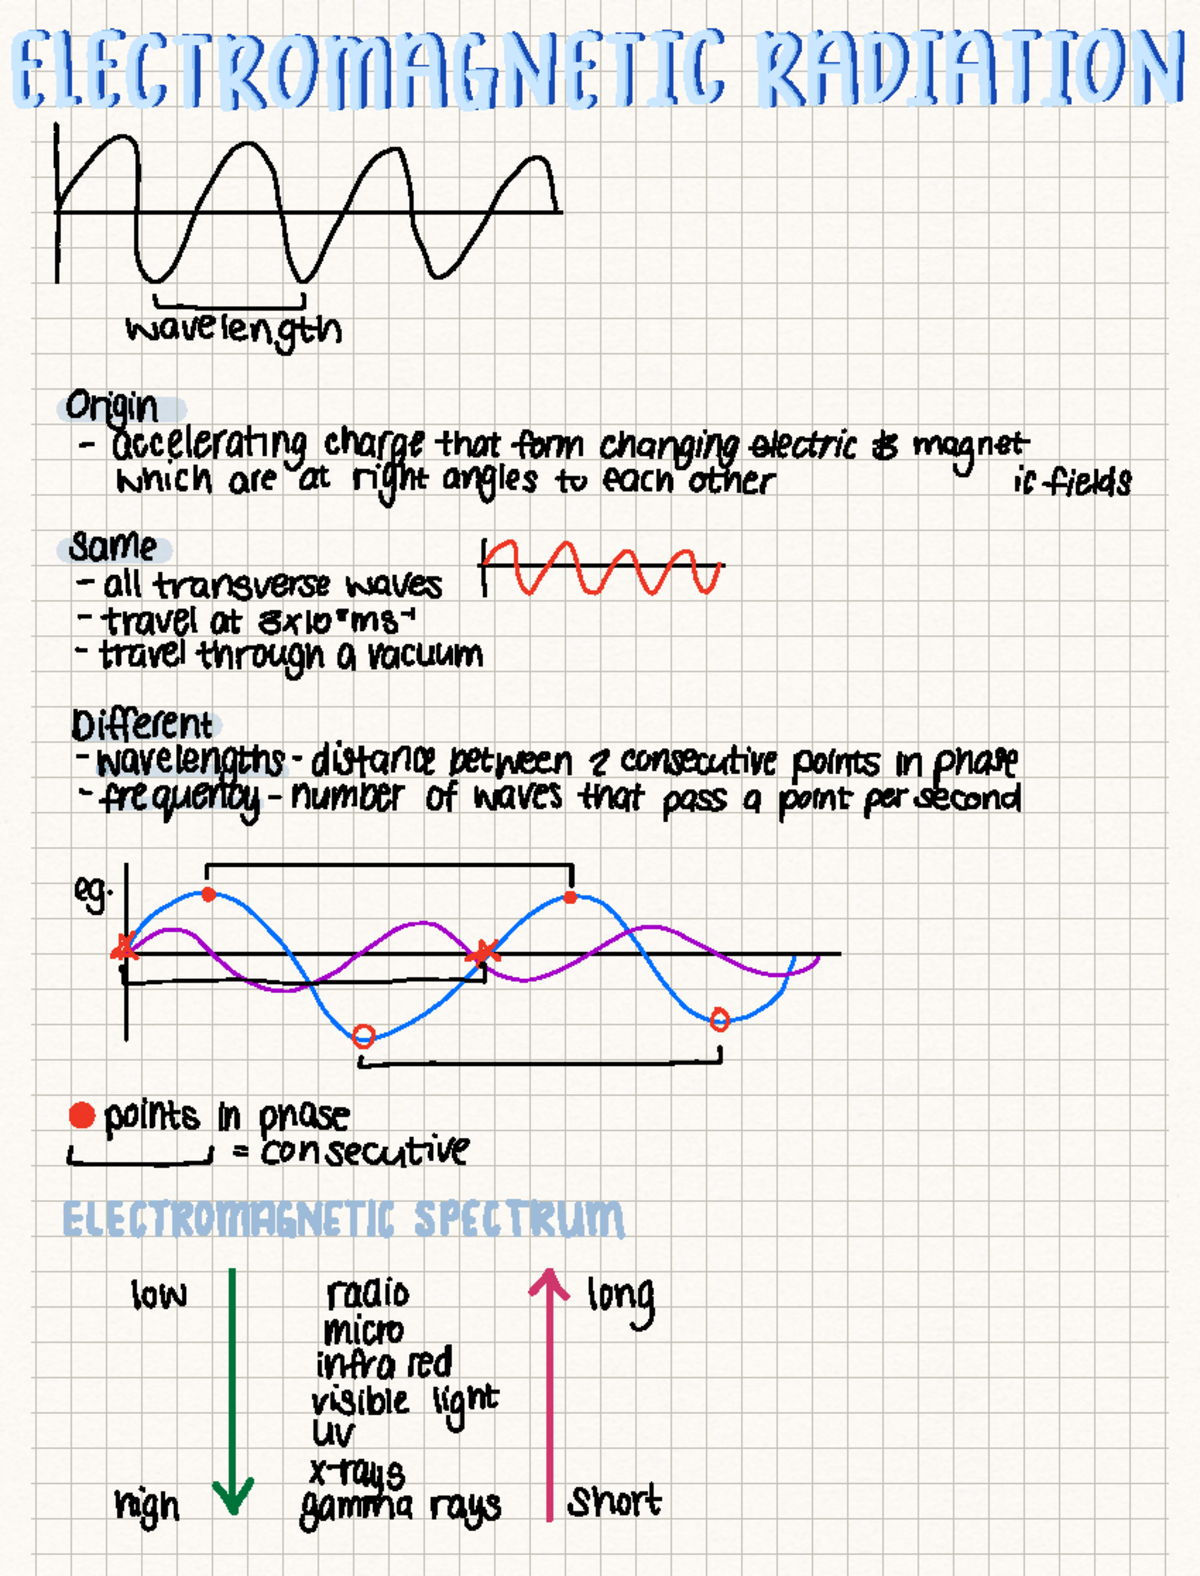 ELECTROMAGNETIC RADIATION
wavelength
Origin
- accelerating charge that form changing electric & magnet
which are at right angles to each other ic fields
Same
- all transverse waves
- travel at 3x10⁸ms⁻¹
- travel through a vacuum
Different
- wavelengths - distance between 2 consecutive points in phase
- frequency - number of waves that pass a point per second
eg.
points in phase
= consecutive
ELECTROMAGNETIC SPECTRUM
low radio long
micro
infra red
visible light
uv
x-rays
high gamma rays short